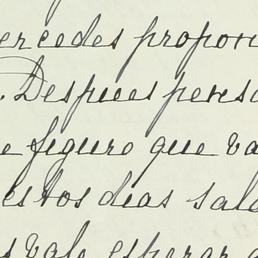 ercedes propon
. Despues pense
e figuro que va
estos días sal
s vale esperar